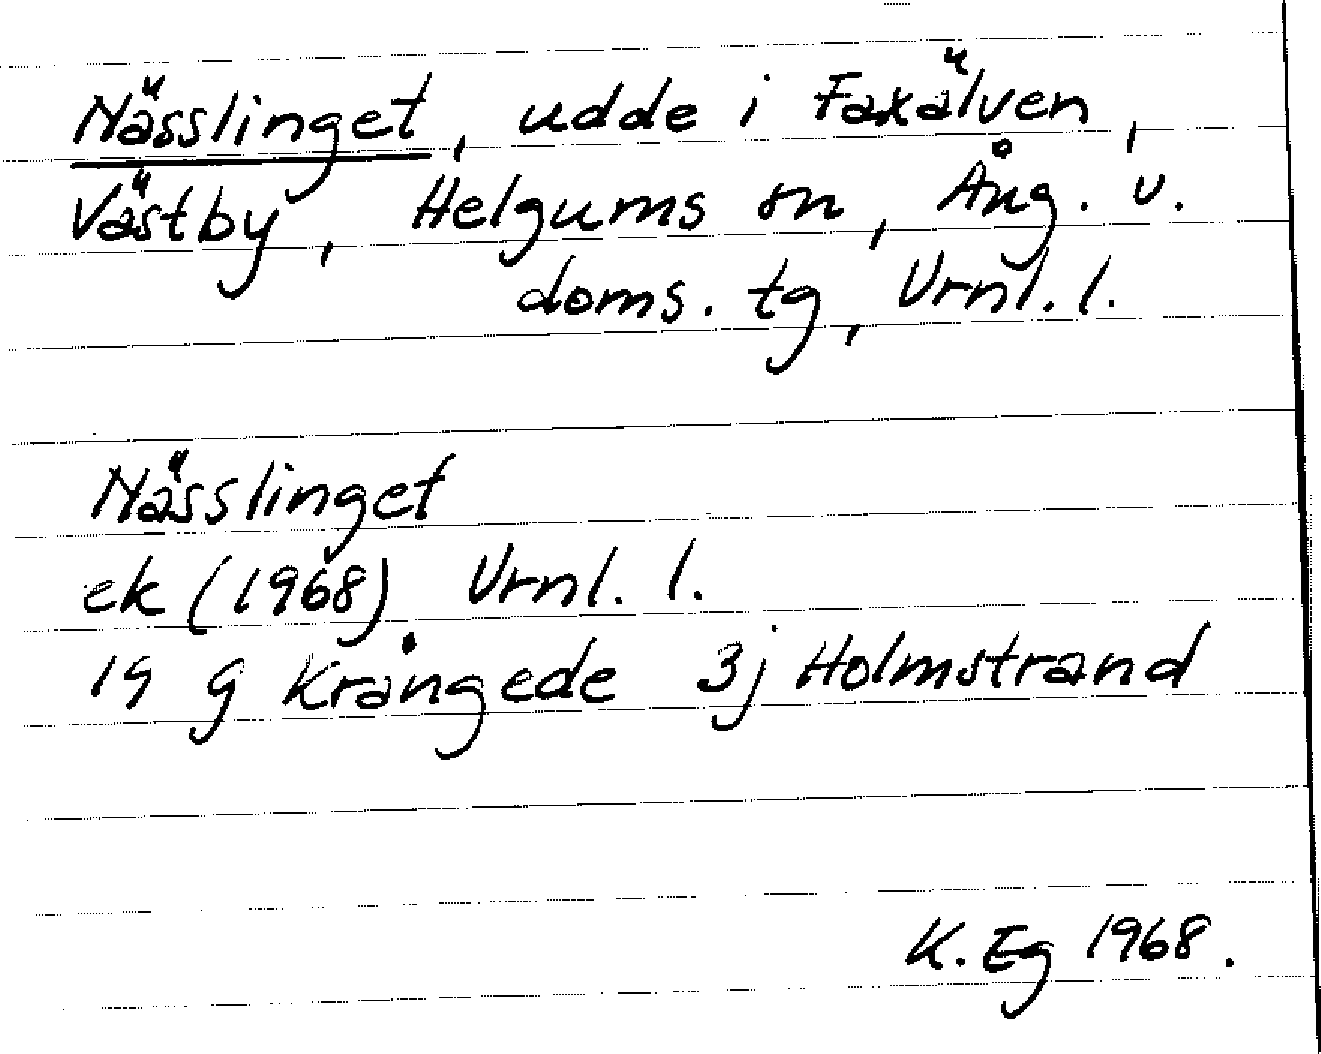 Nässlinget, udde i Faxälven,
Västby, Helgums sn, Ång. v.
doms. tg, Vrnl. l.
Nässlinget
ek (1968) Vrnl. l.
19 g Krångede 3j Holmstrand
K. Eg 1968.